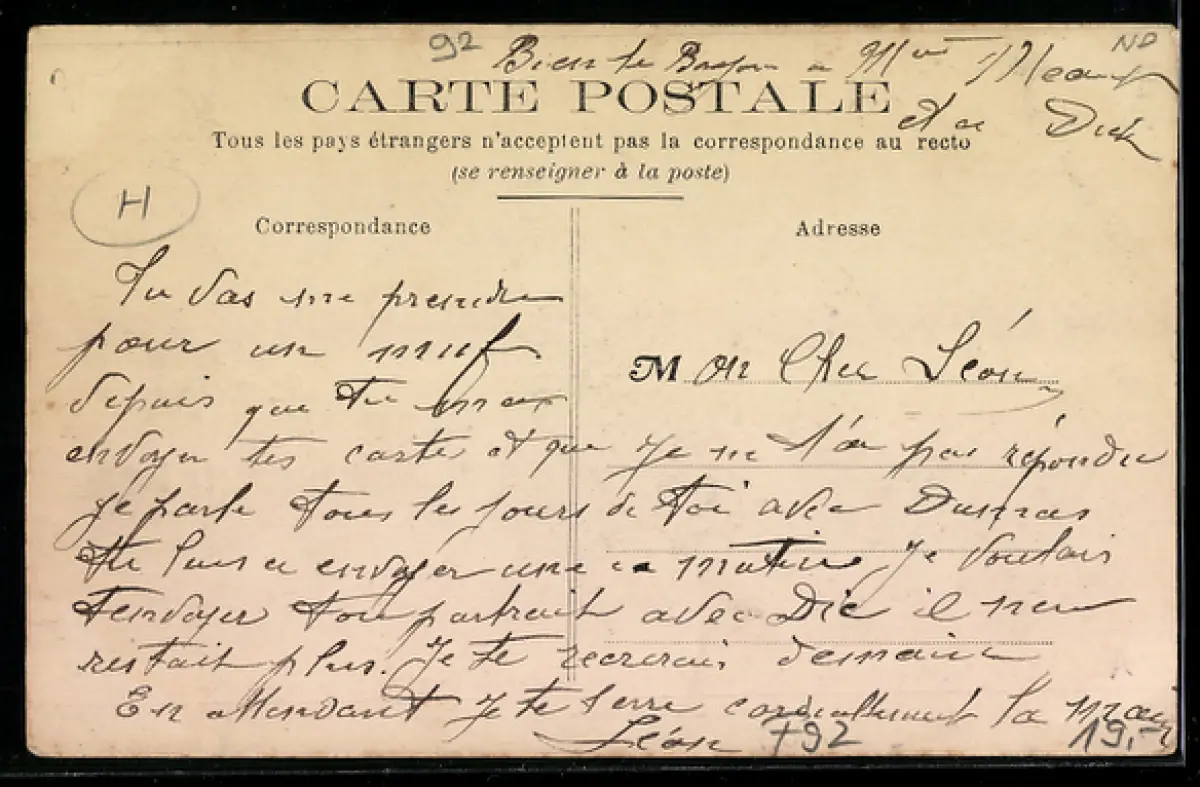 92
ND
Bien le
et a Dick
CARTE POSTALE
Tous les pays étrangers n'acceptent pas la correspondance au recto
(se renseigner à la poste)
H
Correspondance
Adresse
Mon Cher Léon
Tu vas me prendre
pour un muf
depuis que tu
envoyer tes carte et que je ne t'ai pas répondu
je parle tous les jours de toi avec Dumas
tu lui a envoyer une ce matin Je voulais
t'envoyer ton portrait avec Dic il n'en
restait plus. Je te recrerais demain
En attendant je te serre cordialement la main
Léon
+92
19,-